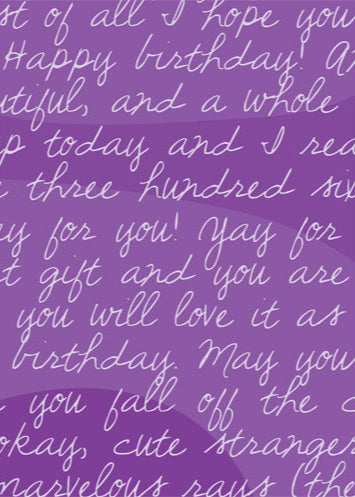 st of all I hope you
Happy birthday! A
utiful, and a whole
p today and I rea
three hundred six
ry for you! Yay for
t gift and you are
you will love it as
birthday. May you
you fall off the c
okay, cute stranger
marvelous rays (the